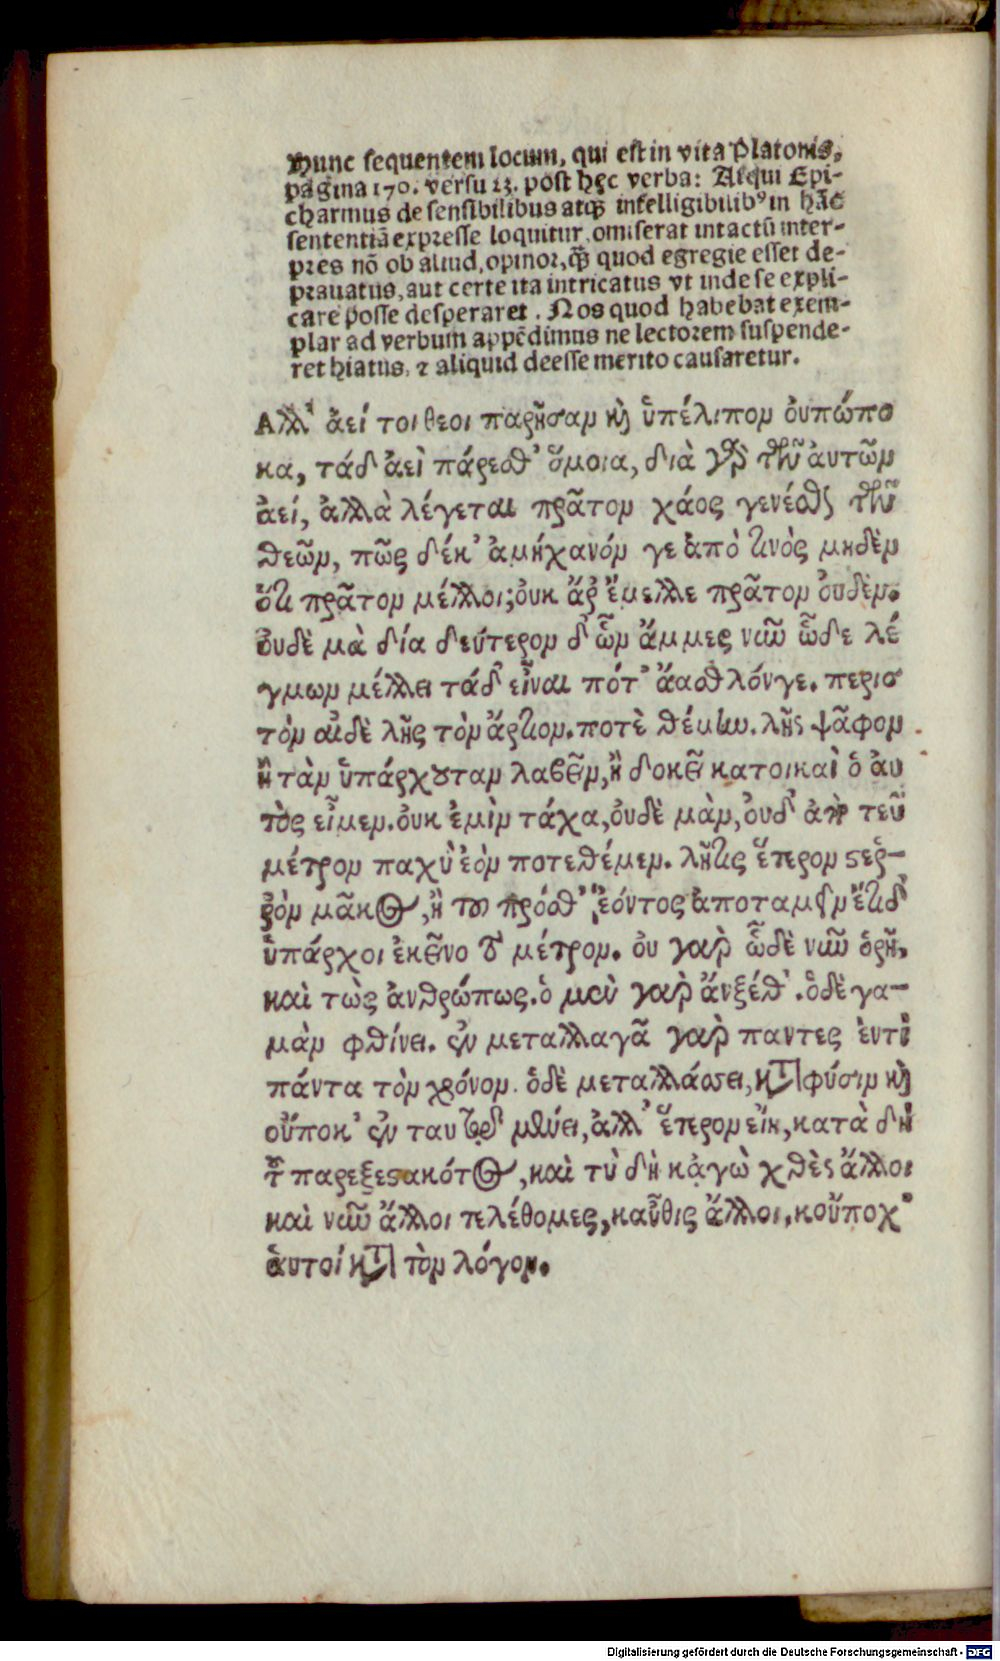 Hunc sequentem locum, qui est in vita Platonis,
pagina 170. versu 23. post hęc verba: Atqui Epi-
charmus de sensibilibus atqꝫ intelligibilibꝰ in hāc
sententiā expresse loquitur, omiserat intactū inter-
pres nō ob aliud, opinor, qꝫ quod egregie esset de-
prauatus, aut certe ita intricatus vt inde se expli-
care posse desperaret. Nos quod habebat exem-
plar ad verbum appēdimus ne lectorem suspende-
ret hiatus, ⁊ aliquid deesse merito causaretur.
Αλλ' ἀεί τοι θεοι παρῆσαν κὴ ὑπέλιπον ὀυπώπο
κα, τάδ ἀεὶ πάρεσθ' ὅμοια, διὰ γὰρ τῶν ἀυτῶν
ἀεί, ἀλλὰ λέγεται πρᾶτον χάος γενέσθαι τῶν
θεῶν, πῶς δέκ' ἀμήχανόν γε ἀπὸ τινὸς μηδὲν
ὅτι πρᾶτον μέλλοι; ὀυκ ἄρ ἔμελλε πρᾶτον ὀυδὲν.
ὀυδὲ μὰ δία δεύτερον δ' ὧν ἄμμες νῶν ὧδε λέ
γμων μέλλει τάδ' εἶναι πότ' ἄασθ λόνγε. περισ
τὸν αἰδὲ λῆς τὸν ἄρτιον. ποτὲ θέμεν. λῆς ψᾶφον
ἢ τὰν ὑπάρχουταν λαβεῖν, ἢ δοκεῖ κατοικαὶ ὁ ἀυ
τὸς εἶμεν. ὀυκ ἐμὶν τάχα, ὀυδὲ μὰν, ὀυδ'
μέτρον παχὺ ἐὸν ποτεθέμεν. λῆτις ἕτερον στερ-
ρὸν μᾶκος, ἢ του πρόσθ' ἐόντος ἀποταμεῖν ἔτιδ'
ὑπάρχοι ἐκεῖνο τὸ μέτρον. ὀυ γαρ ὧδὲ νῶν ὁρῆ,
καὶ τὼς ἀνθρώπως. ὁ μεν γαρ ἄνξέθ'. ὁδὲ γα-
μὰν φθίνει. ἐν μεταλλαγᾶ γαρ παντες ἐντὶ
πάντα τὸν χρόνον. ὁδὲ μεταλλάσσει, κατὰ φύσιν κὴ
ὀύποκ' ἐν ταυτῷ μένει, ἀλλ' ἕτερον εἴη, κατὰ δὴ
τοῦ παρεξεστακότος, καὶ τὺ δὴ κἀγὼ χθὲς ἄλλοι
καὶ νῶν ἄλλοι τελέθομες, καῦθις ἄλλοι, κοὔποχ'
ἀυτοί κατὰ τὸν λόγον.
Digitalisierung gefördert durch die Deutsche Forschungsgemeinschaft - DFG